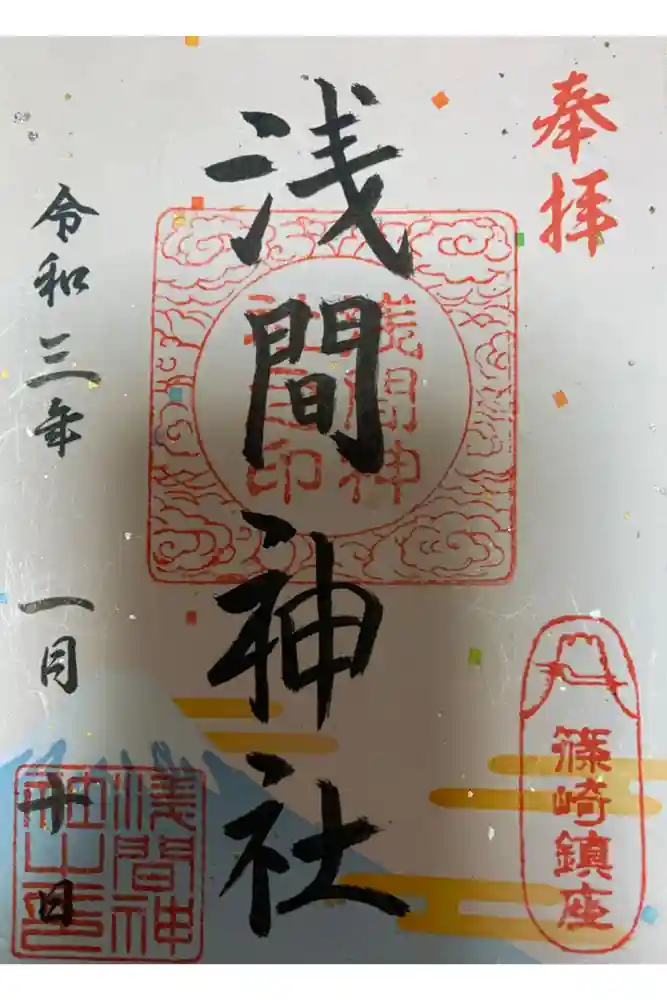 奉拝
浅間神社
浅間神
社之印
篠崎鎮座
令和三年 一月 十日
浅間神
社之印